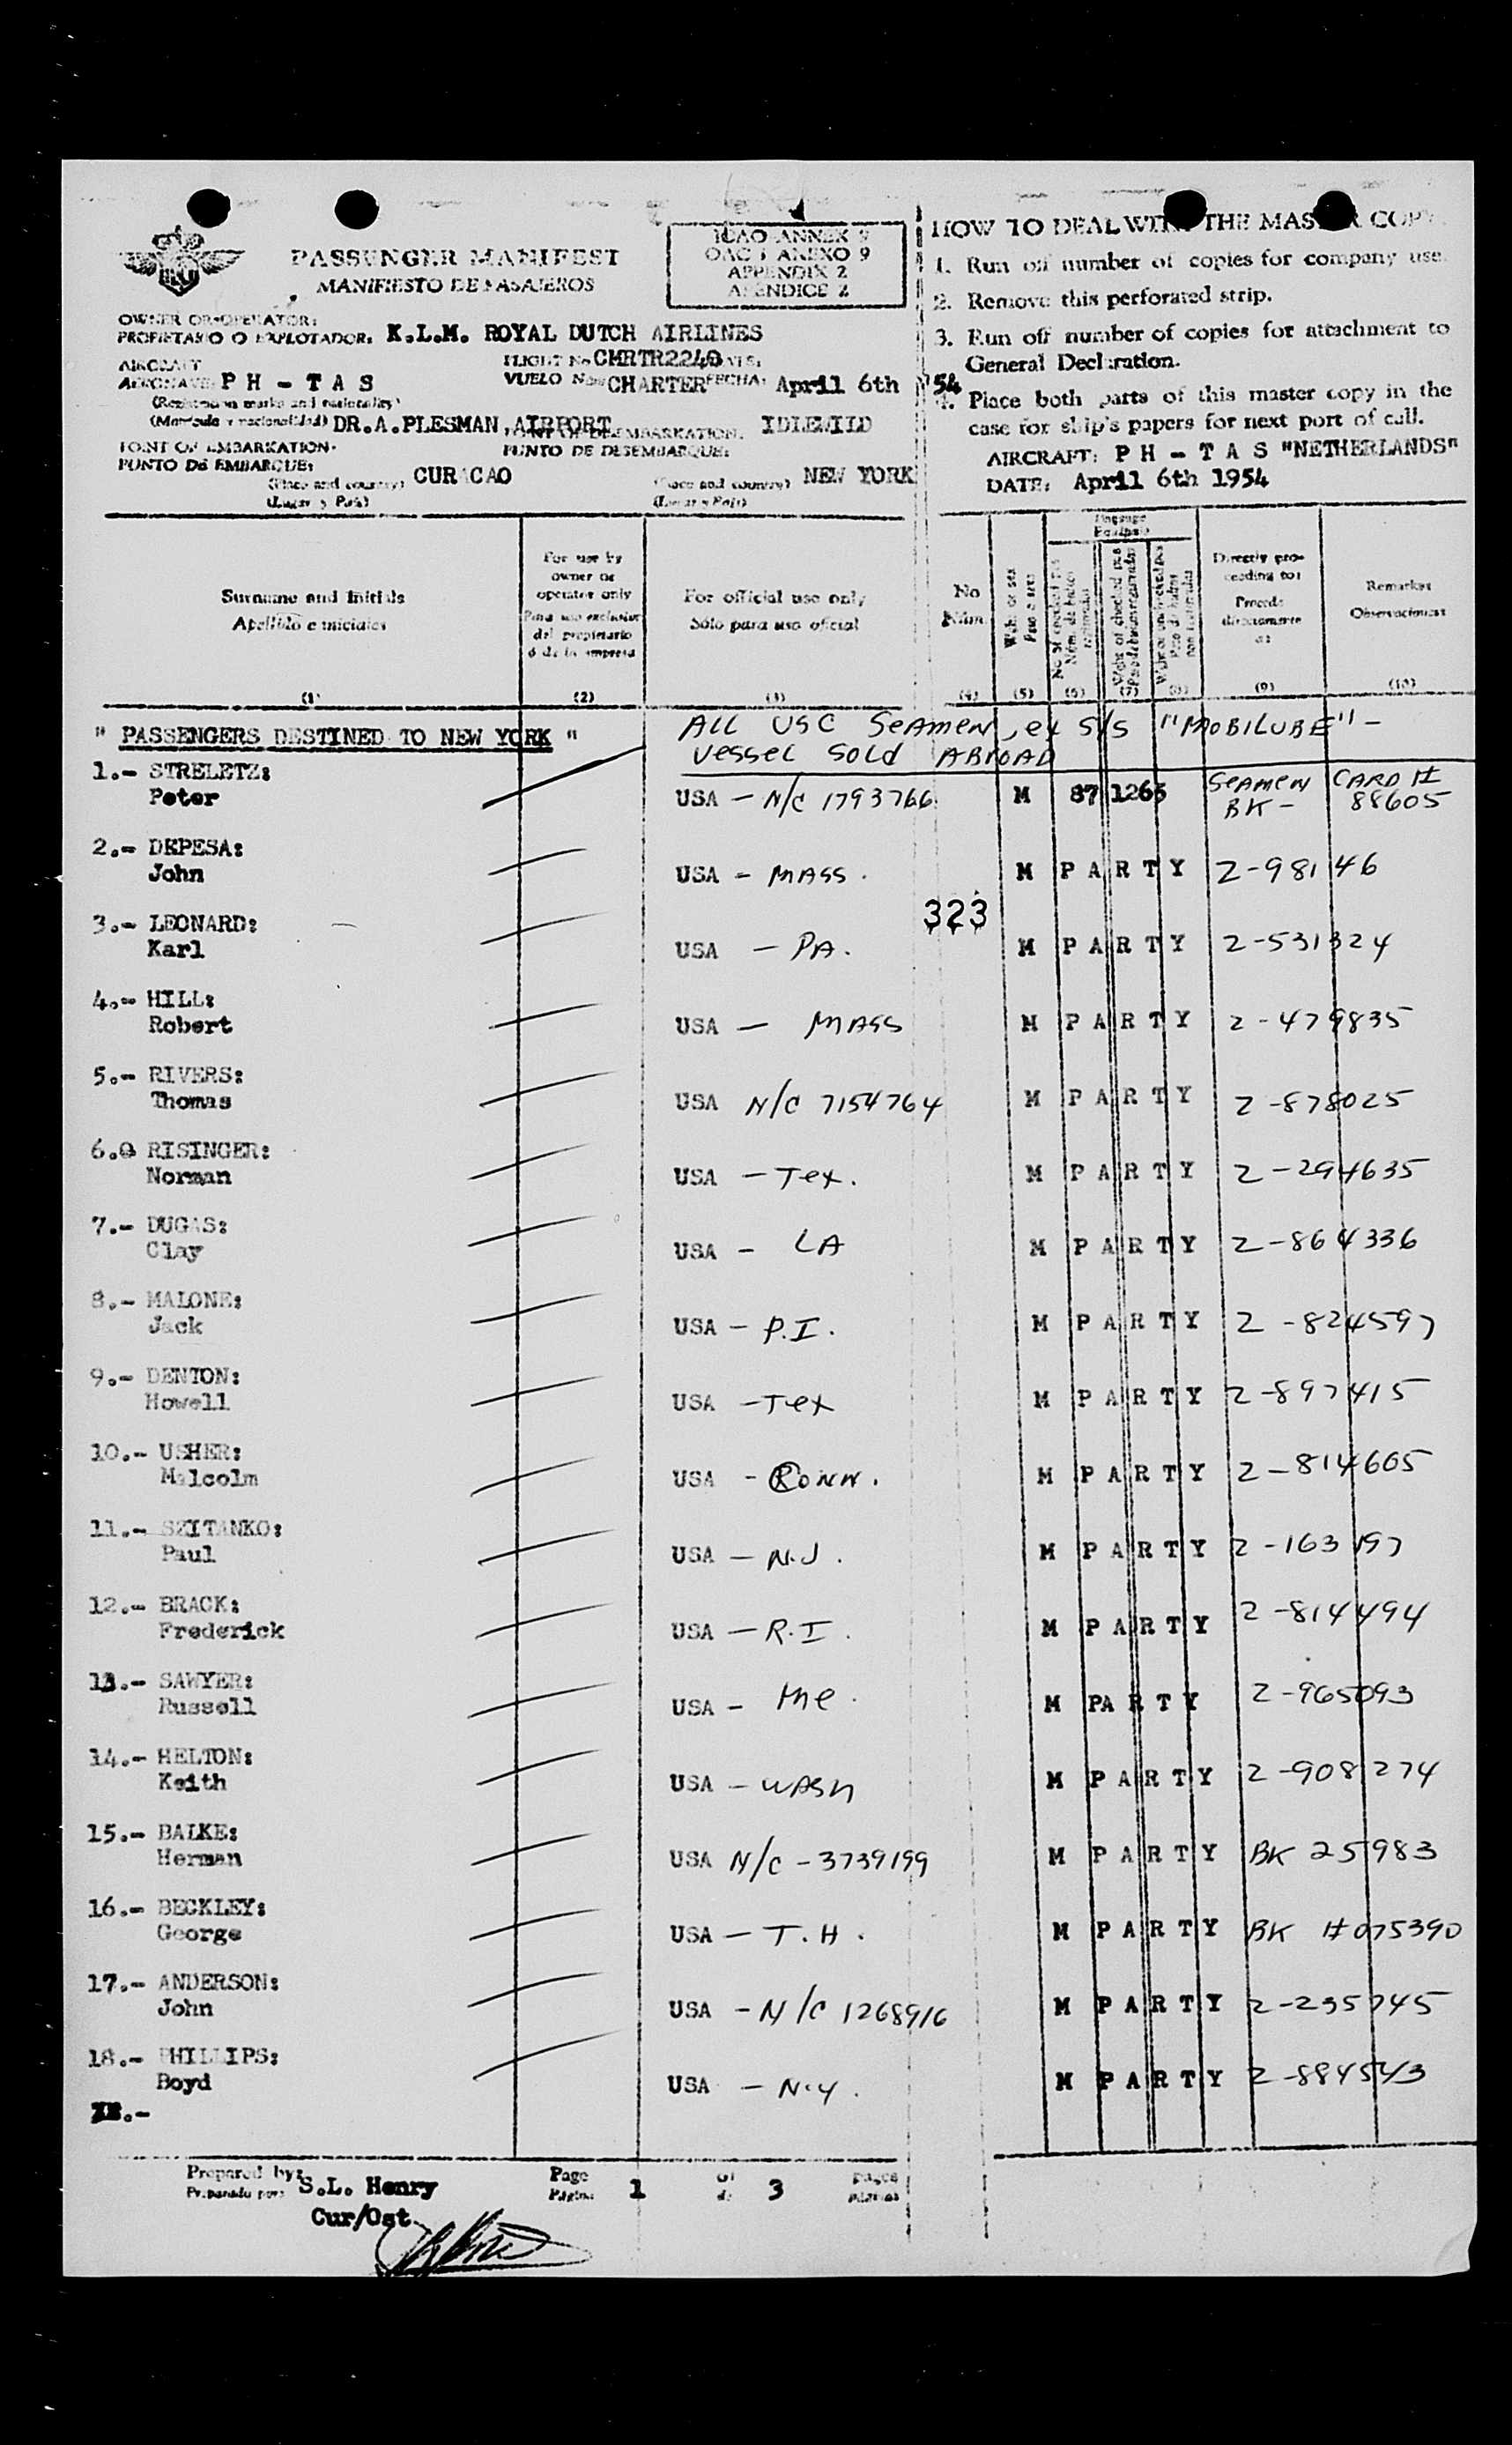 PASSENGER MANIFEST
MANIFIESTO DE PASAJEROS
ICAO ANNEX 9
OACI ANEXO 9
APPENDIX 2
APENDICE 2
OWNER OR OPERATOR:
PROPIETARIO O EXPLOTADOR: K.L.M. ROYAL DUTCH AIRLINES
AIRCRAFT
AERONAVE: PH - TAS
FLIGHT No CHRTR2240
VUELO No CHARTER FECHA: April 6th '54
(Registration marks and nationality)
(Matrícula y nacionalidad) DR.A.PLESMAN AIRPORT IDLEWILD
POINT OF EMBARKATION:
PUNTO DE EMBARQUE: CURACAO
(Place and country)
(Lugar y País)
POINT OF DISEMBARKATION:
PUNTO DE DESEMBARQUE: NEW YORK
(Place and country)
(Lugar y País)
HOW TO DEAL WITH THE MASTER COPY
1. Run off number of copies for company use.
2. Remove this perforated strip.
3. Run off number of copies for attachment to
General Declaration.
4. Place both parts of this master copy in the
case for ship's papers for next port of call.
AIRCRAFT: PH - TAS "NETHERLANDS"
DATE: April 6th 1954
Surname and Initials
Apellido e iniciales
(1)
For use by
owner or
operator only
Para uso exclusivo
del propietario
ó de la empresa
(2)
For official use only
Sólo para uso oficial
(3)
No
Núm.
(4)
(5)
(6)
(7)
(8)
Directly pro-
ceeding to:
Procede
directamente
a:
(9)
Remarks
Observaciones
(10)
" PASSENGERS DESTINED TO NEW YORK "
ALL USC SEAMEN, ex S/S "MOBILUBE" -
Vessel sold ABROAD
1.- STRELETZ:
Peter USA - N/C 1793766 M 87 1265 SEAMEN BK - CARD # 88605
2.- DEPESA:
John USA - MASS. M PARTY Z-98146
323
3.- LEONARD:
Karl USA - PA. M PARTY Z-531324
4.- HILL:
Robert USA - MASS M PARTY Z-479835
5.- RIVERS:
Thomas USA N/C 7154764 M PARTY Z-878025
6.- RISINGER:
Norman USA - Tex. M PARTY Z-294635
7.- DUGAS:
Clay USA - LA M PARTY Z-864336
8.- MALONE:
Jack USA - P.I. M PARTY Z-824597
9.- DENTON:
Howell USA - Tex M PARTY Z-897415
10.- USHER:
Malcolm USA - CONN. M PARTY Z-814605
11.- SZITANKO:
Paul USA - N.J. M PARTY Z-163197
12.- BRACK:
Frederick USA - R.I. M PARTY Z-814494
13.- SAWYER:
Russell USA - Me. M PARTY Z-965093
14.- HELTON:
Keith USA - WASH M PARTY Z-908274
15.- BALKE:
Herman USA N/C - 3739199 M PARTY BK 25983
16.- BECKLEY:
George USA - T.H. M PARTY BK #075390
17.- ANDERSON:
John USA - N/C 1268916 M PARTY Z-235745
18.- PHILLIPS:
Boyd USA - N.Y. M PARTY Z-884543
Prepared by:
Preparado por: S.L. Henry
Cur/Ost.
Page 1 of 3 pages
Página de páginas